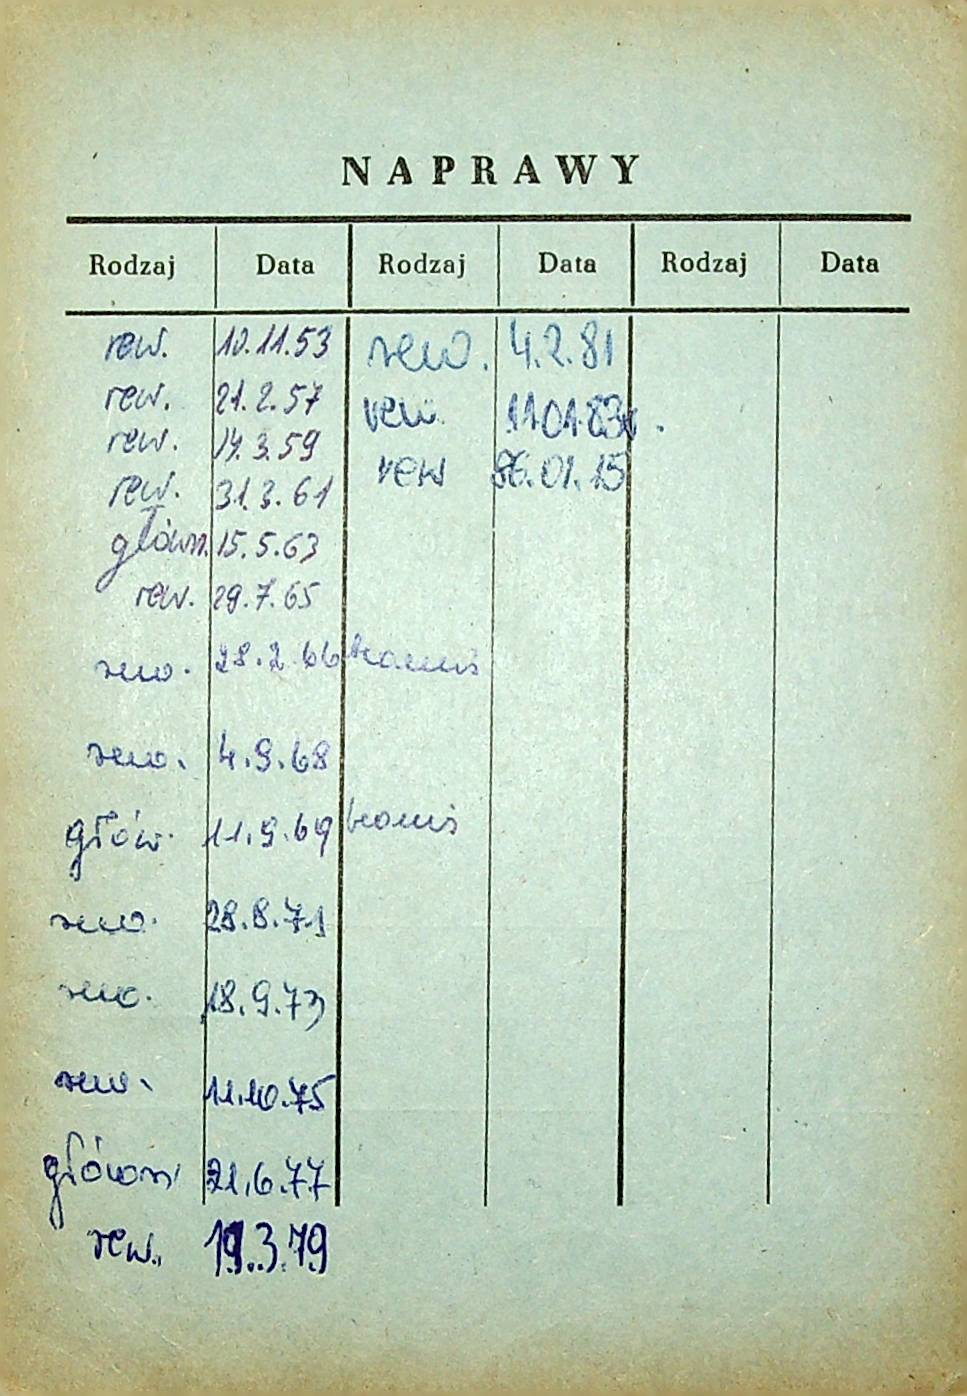 NAPRAWY
Rodzaj Data Rodzaj Data Rodzaj Data
rew. 10.11.53 rew. 4.2.81
rew. 21.2.57 rew. 11.01.83r.
rew. 14.3.59
rew. 31.3.61 rew 86.01.15
główn. 15.5.63
rew. 29.7.65
rew. 28.2.66
rew. 4.9.68
głów. 11.9.69
rew. 28.8.71
rew. 18.9.73
rew. 11.10.75
główn 21.6.77
rew. 19.3.79